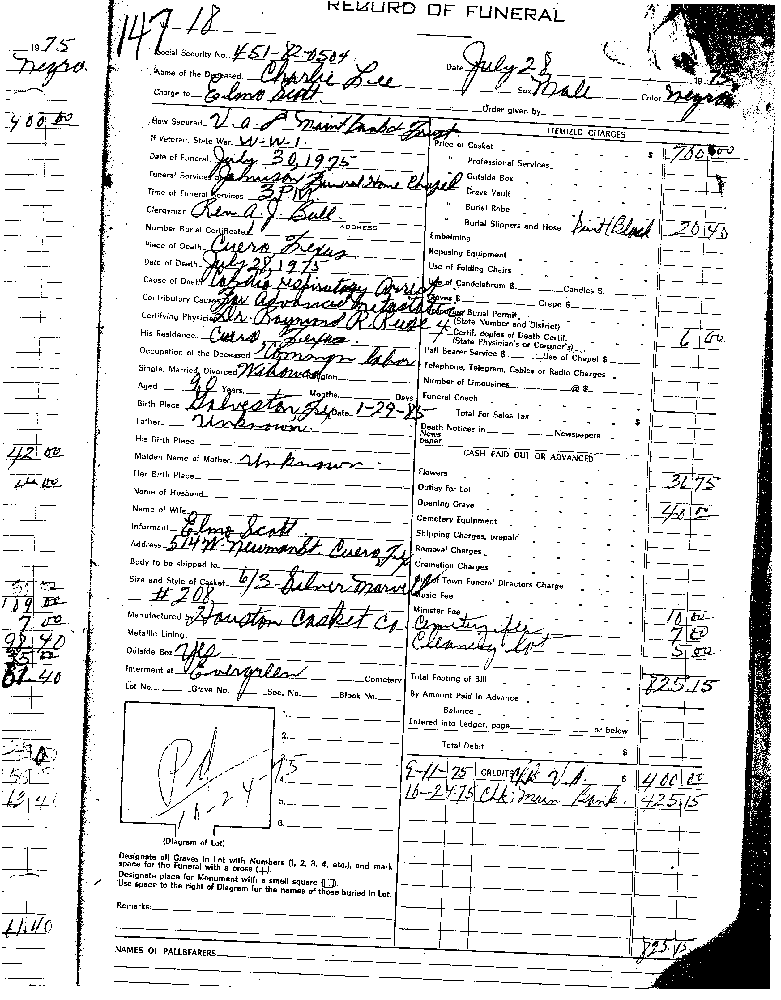 RECORD OF FUNERAL
147-18
Social Security No. 451-82-0504
Date July 28 19 75
Name of the Deceased Charlie Lee
Sex Male Color Negro
Charge to Elmo Scott
Order given by
How Secured V.A &
If Veteran, State War W-W-1
Date of Funeral July 30, 1975
Funeral Services Funeral Home Chapel
Time of Funeral Services 3 P.M
Clergyman Rev. A. J. Ball
Number Burial Certificate ADDRESS
Place of Death Cuero Texas
Date of Death July 28, 1975
Cause of Death Cardio respiratory arrest
Contributory Causes Advanced
Certifying Physician Dr. Raymond R. Reese
His Residence Cuero Texas
Occupation of the Deceased Common labor
Single, Married, Divorced Widowed Religion
Aged 90 Years Months Days
Birth Place Galveston Tex Date 1-29-85
Father Unknown
His Birth Place
Maiden Name of Mother Unknown
Her Birth Place
Name of Husband
Name of Wife
Informant Elmo Scott
Address 514 W. Newman St. Cuero Tex
Body to be shipped to
Size and Style of Casket 6/3 Silver Marvel
# 208
Manufactured by Houston Casket Co
Metallic Lining
Outside Box Yes
Interment at Evergreen Cemetery
Lot No. Grave No. Sec. No. Block No.
1.
2.
4.
5.
6.
Pd
10-24-75
(Diagram of Lot)
Designate all Graves in Lot with Numbers (1, 2, 3, 4, etc.), and mark
space for the Funeral with a cross (+).
Designate place for Monument with a small square
Use space to the right of Diagram for the names of those buried in Lot.
Remarks:
NAMES OF PALLBEARERS
ITEMIZED CHARGES
Price of Casket $ 700 00
" Professional Services
" Outside Box
" Grave Vault
" Burial Robe
" Burial Slippers and Hose 20 40
Embalming
Reposing Equipment
Use of Folding Chairs
Use of Candelabrum $ Candles $
Gloves $ Crape $
Burial Permit
(State Number and District)
4 Certif. copies of Death Certif. 6 00
(State Physician's or Coroner's)
Pall Bearer Service $ Use of Chapel $
Telephone, Telegram, Cables or Radio Charges
Number of Limousines @ $
Funeral Coach
Total For Sales Tax $
Death Notices in Newspapers
News
paper
CASH PAID OUT OR ADVANCED
Flowers 36 75
Outlay For Lot
Opening Grave 40 00
Cemetery Equipment
Shipping Charges, prepaid
Removal Charges
Cremation Charges
Out of Town Funeral Directors Charge
Music Fee
Minister Fee 10 00
7 00
Cleaning Lot 5 00
Total Footing of Bill 825 15
By Amount Paid In Advance
Balance
Entered into Ledger, page or below
Total Debit $
9-11-75 CREDIT V.A. $ 400 00
10-24-75 Ck. Main Bank. 425 15
825 15
19 75
Negro
400 00
42 00
109 00
7 00
98 40